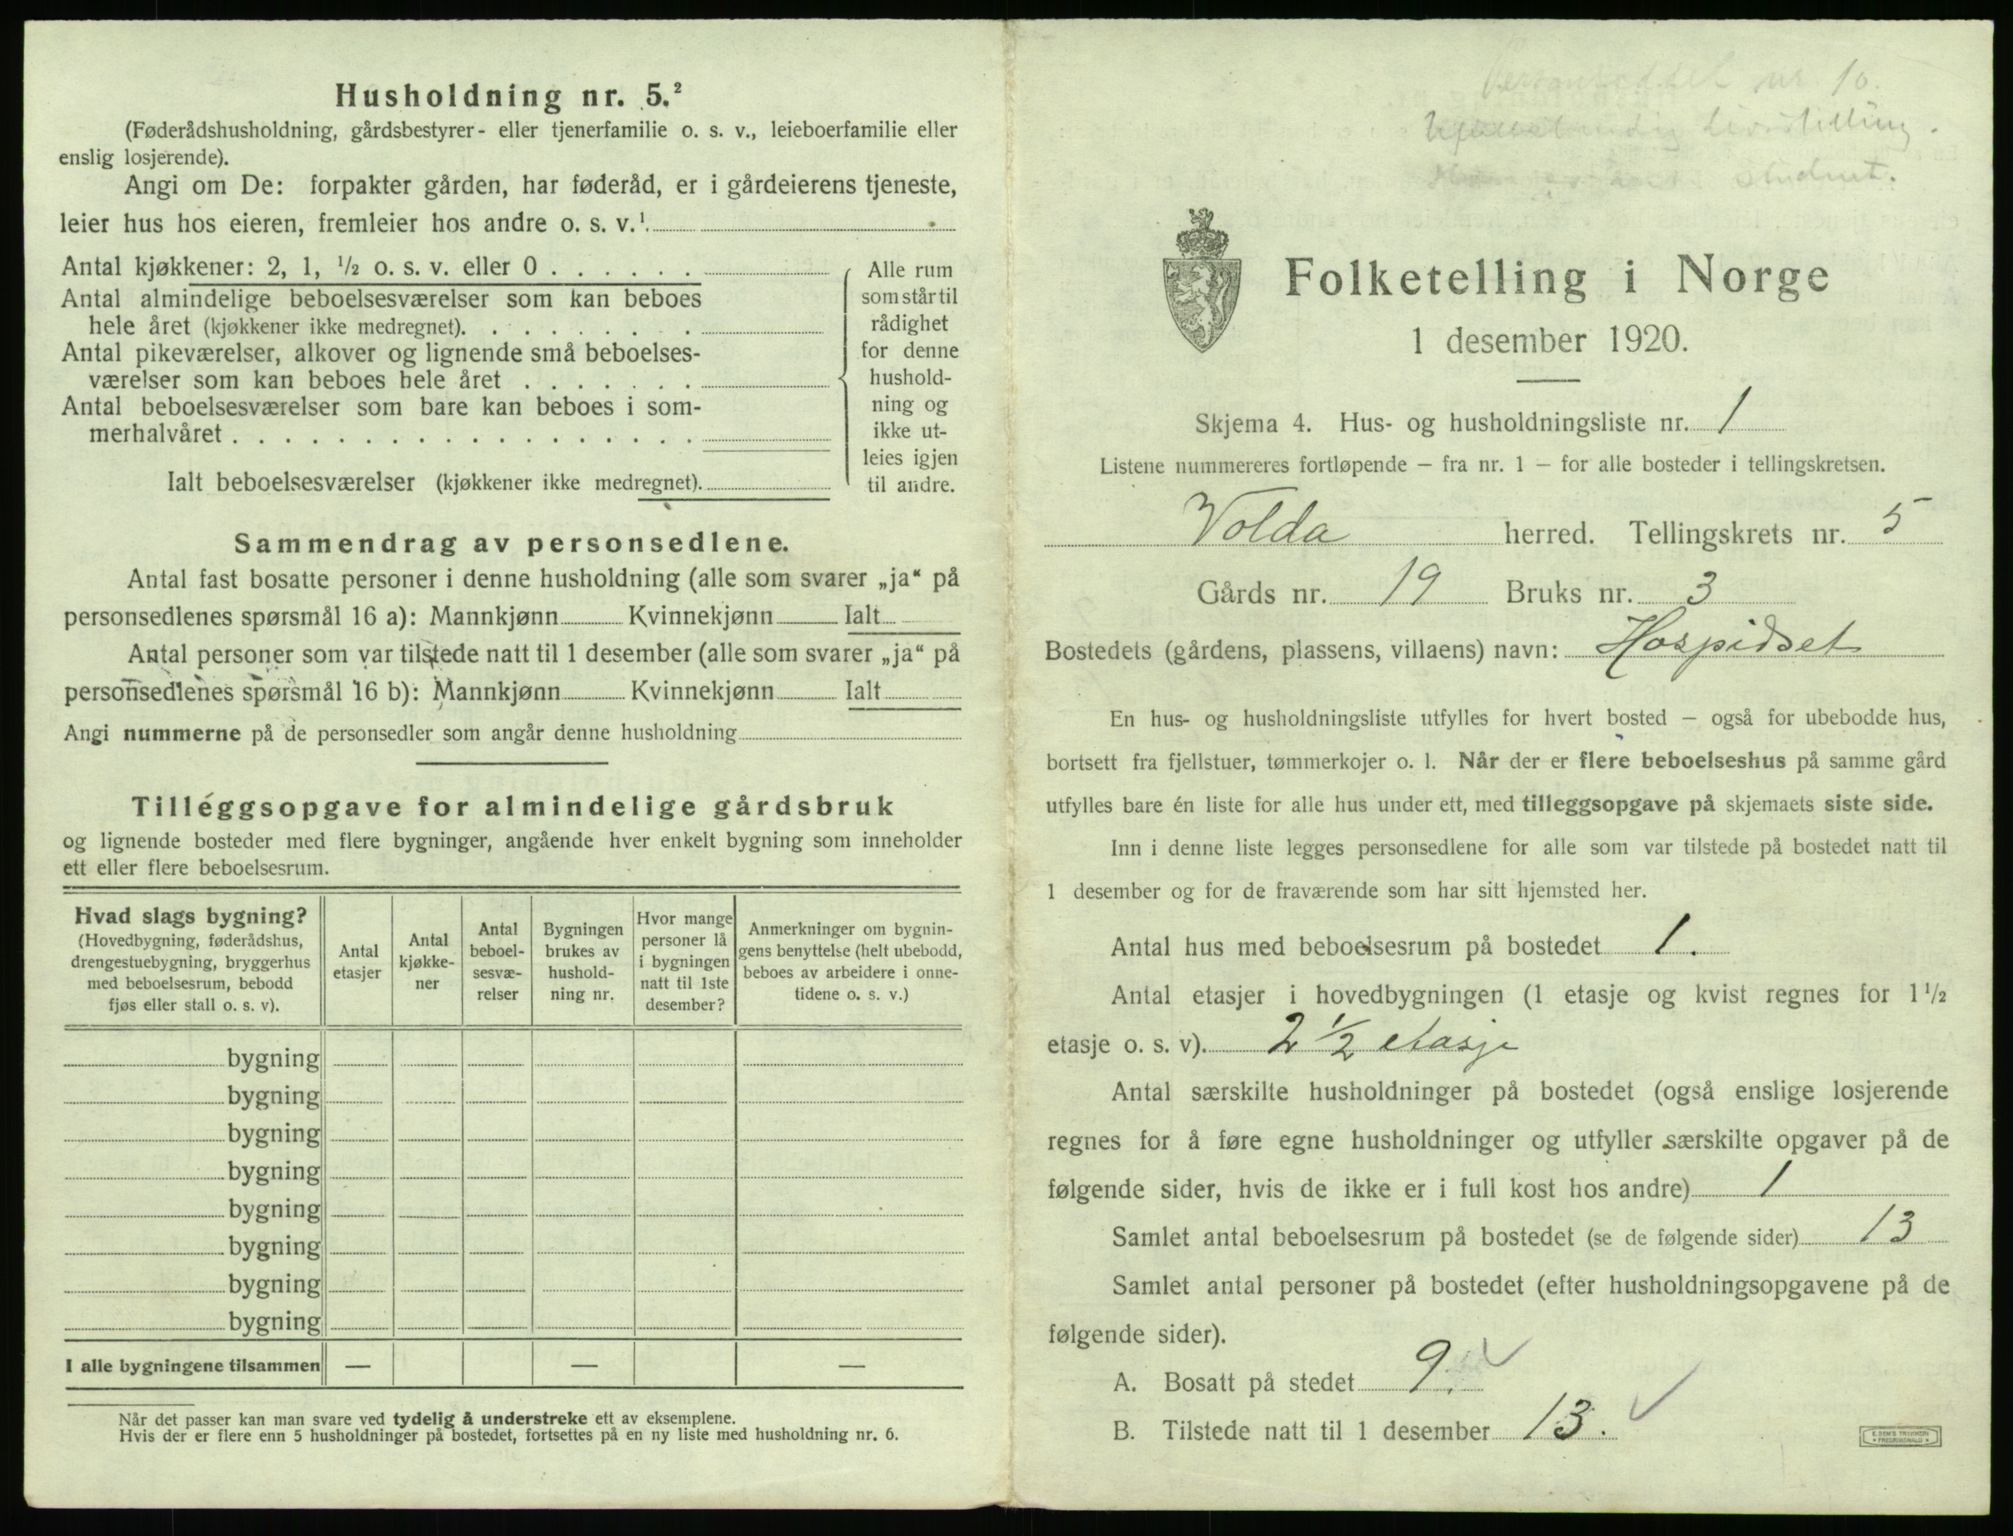 Husholdning nr. 5.²
(Føderådshusholdning, gårdsbestyrer- eller tjenerfamilie o. s. v., leieboerfamilie eller
enslig losjerende).
Angi om De: forpakter gården, har føderåd, er i gårdeierens tjeneste,
leier hus hos eieren, fremleier hos andre o. s. v.¹
Antal kjøkkener: 2, 1, ½ o. s. v. eller 0
Antal almindelige beboelsesværelser som kan beboes
hele året (kjøkkener ikke medregnet).
Antal pikeværelser, alkover og lignende små beboelses-
værelser som kan beboes hele året
Antal beboelsesværelser som bare kan beboes i som-
merhalvåret
Ialt beboelsesværelser (kjøkkener ikke medregnet).
Alle rum
som står til
rådighet
for denne
hushold-
ning og
ikke ut-
leies igjen
til andre.
Sammendrag av personsedlene.
Antal fast bosatte personer i denne husholdning (alle som svarer „ja“ på
personsedlenes spørsmål 16 a): Mannkjønn Kvinnekjønn Ialt
Antal personer som var tilstede natt til 1 desember (alle som svarer „ja“ på
personsedlenes spørsmål 16 b): Mannkjønn Kvinnekjønn Ialt
Angi nummerne på de personsedler som angår denne husholdning
Tilleggsopgave for almindelige gårdsbruk
og lignende bosteder med flere bygninger, angående hver enkelt bygning som inneholder
ett eller flere beboelsesrum.
Hvad slags bygning?
(Hovedbygning, føderådshus,
drengestuebygning, bryggerhus
med beboelsesrum, bebodd
fjøs eller stall o. s. v).
Antal
etasjer
Antal
kjøkke-
ner
Antal
beboel-
sesvæ-
relser
Bygningen
brukes av
hushold-
ning nr.
Hvor mange
personer lå
i bygningen
natt til 1ste
desember?
Anmerkninger om bygnin-
gens benyttelse (helt ubebodd,
beboes av arbeidere i onne-
tidene o. s. v.)
bygning
bygning
bygning
bygning
bygning
bygning
bygning
bygning
I alle bygningene tilsammen — — —
Når det passer kan man svare ved tydelig å understreke ett av eksemplene.
Hvis der er flere enn 5 husholdninger på bostedet, fortsettes på en ny liste med husholdning nr. 6.
nr 10.
Livsstilling.
student.
Folketelling i Norge
1 desember 1920.
Skjema 4. Hus- og husholdningsliste nr. 1
Listene nummereres fortløpende – fra nr. 1 – for alle bosteder i tellingskretsen.
Volda herred. Tellingskrets nr. 5
Gårds nr. 19 Bruks nr. 3
Bostedets (gårdens, plassens, villaens) navn: Hospidset
En hus- og husholdningsliste utfylles for hvert bosted – også for ubebodde hus,
bortsett fra fjellstuer, tømmerkojer o. l. Når der er flere beboelseshus på samme gård
utfylles bare én liste for alle hus under ett, med tilleggsopgave på skjemaets siste side.
Inn i denne liste legges personsedlene for alle som var tilstede på bostedet natt til
1 desember og for de fraværende som har sitt hjemsted her.
Antal hus med beboelsesrum på bostedet 1.
Antal etasjer i hovedbygningen (1 etasje og kvist regnes for 1½
etasje o. s. v). 2 ½ etasje
Antal særskilte husholdninger på bostedet (også enslige losjerende
regnes for å føre egne husholdninger og utfyller særskilte opgaver på de
følgende sider, hvis de ikke er i full kost hos andre) 1
Samlet antal beboelsesrum på bostedet (se de følgende sider) 13
Samlet antal personer på bostedet (efter husholdningsopgavene på de
følgende sider).
A. Bosatt på stedet 9.
B. Tilstede natt til 1 desember 13.